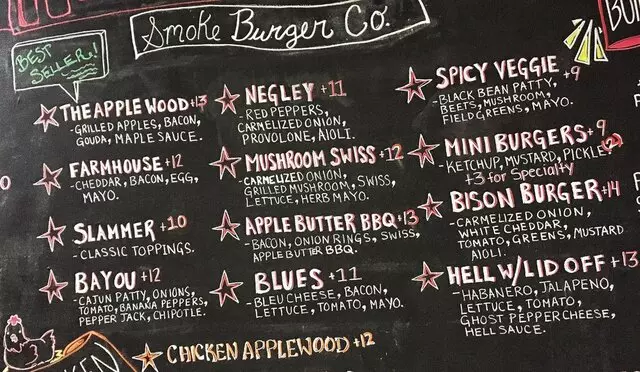 Smoke Burger Co.
BEST
SELLER!
THE APPLE WOOD +13
-GRILLED APPLES, BACON,
GOUDA, MAPLE SAUCE.
FARMHOUSE +12
-CHEDDAR, BACON, EGG,
MAYO.
SLAMMER +10
-CLASSIC TOPPINGS.
BAYOU +12
-CAJUN PATTY, ONIONS,
TOMATO, BANANA PEPPERS,
PEPPER JACK, CHIPOTLE.
NEGLEY +11
-RED PEPPERS,
CARMELIZED ONION,
PROVOLONE, AIOLI.
MUSHROOM SWISS +12
-CARMELIZED ONION,
GRILLED MUSHROOM, SWISS,
LETTUCE, HERB MAYO.
APPLE BUTTER BBQ +13
-BACON, ONION RINGS, SWISS,
APPLE BUTTER BBQ.
BLUES +11
-BLEU CHEESE, BACON,
LETTUCE, TOMATO, MAYO.
CHICKEN APPLEWOOD +12
SPICY VEGGIE +9
-BLACK BEAN PATTY,
BEETS, MUSHROOM,
FIELD GREENS, MAYO.
MINI BURGERS +9
-KETCHUP, MUSTARD, PICKLE (2)
+3 for Specialty
BISON BURGER +14
-CARMELIZED ONION,
WHITE CHEDDAR,
TOMATO, GREENS, MUSTARD
AIOLI.
HELL W/LID OFF +13
-HABANERO, JALAPENO,
LETTUCE, TOMATO,
GHOST PEPPER CHEESE,
HELL SAUCE.